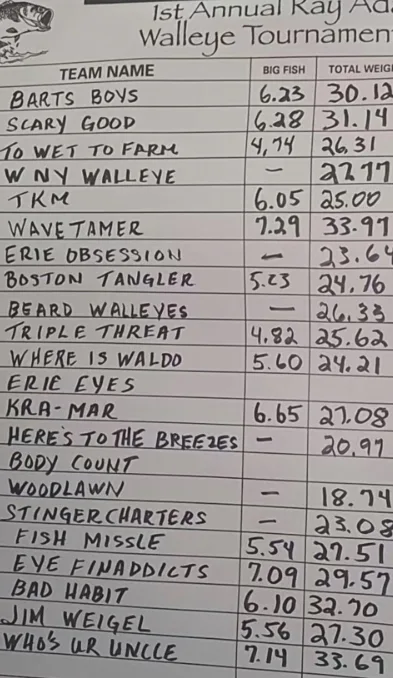 1st Annual Ray Ad
Walleye Tournamen
TEAM NAME BIG FISH TOTAL WEIG
BARTS BOYS 6.23 30.12
SCARY GOOD 6.28 31.14
TO WET TO FARM 4,74 26.31
WNY WALLEYE – 27.77
TKM 6.05 25.00
WAVE TAMER 7.29 33.97
ERIE OBSESSION – 23.64
BOSTON TANGLER 5.23 24.76
BEARD WALLEYES – 26.33
TRIPLE THREAT 4.82 25.62
WHERE IS WALDO 5.60 24.21
ERIE EYES
KRA-MAR 6.65 27.08
HERE'S TO THE BREEZES – 20.97
BODY COUNT
WOODLAWN – 18.74
STINGER CHARTERS – 23.08
FISH MISSLE 5.54 27.51
EYE FINADDICTS 7.09 29.57
BAD HABIT 6.10 32.70
JIM WEIGEL 5.56 27.30
WHO'S UR UNCLE 7.14 33.69